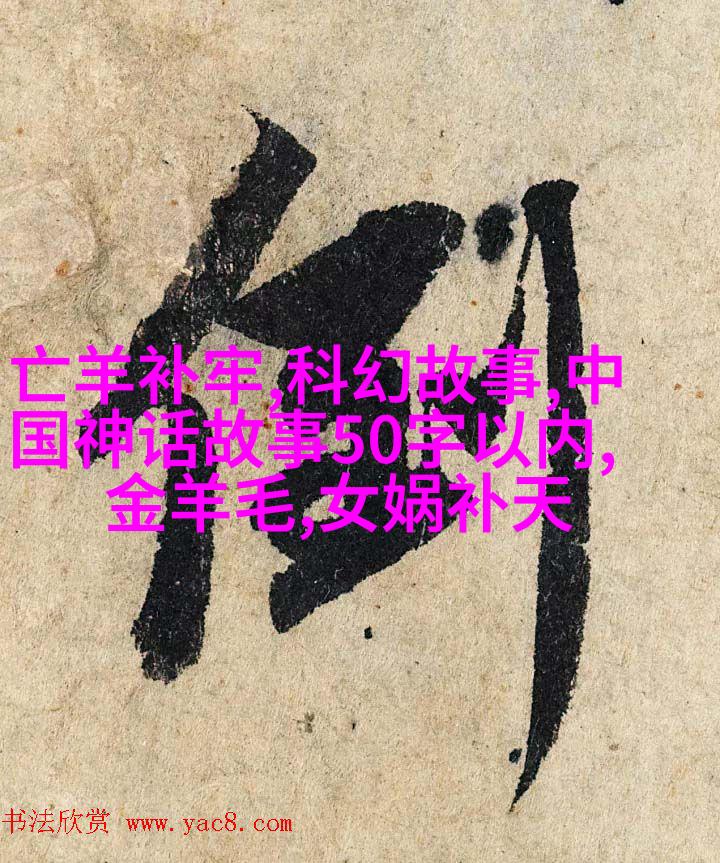 倒
亡羊补牢,科幻故事,中
国神话故事50字以内,
金羊毛,女娲补天
书法欣赏 www.yac8.com